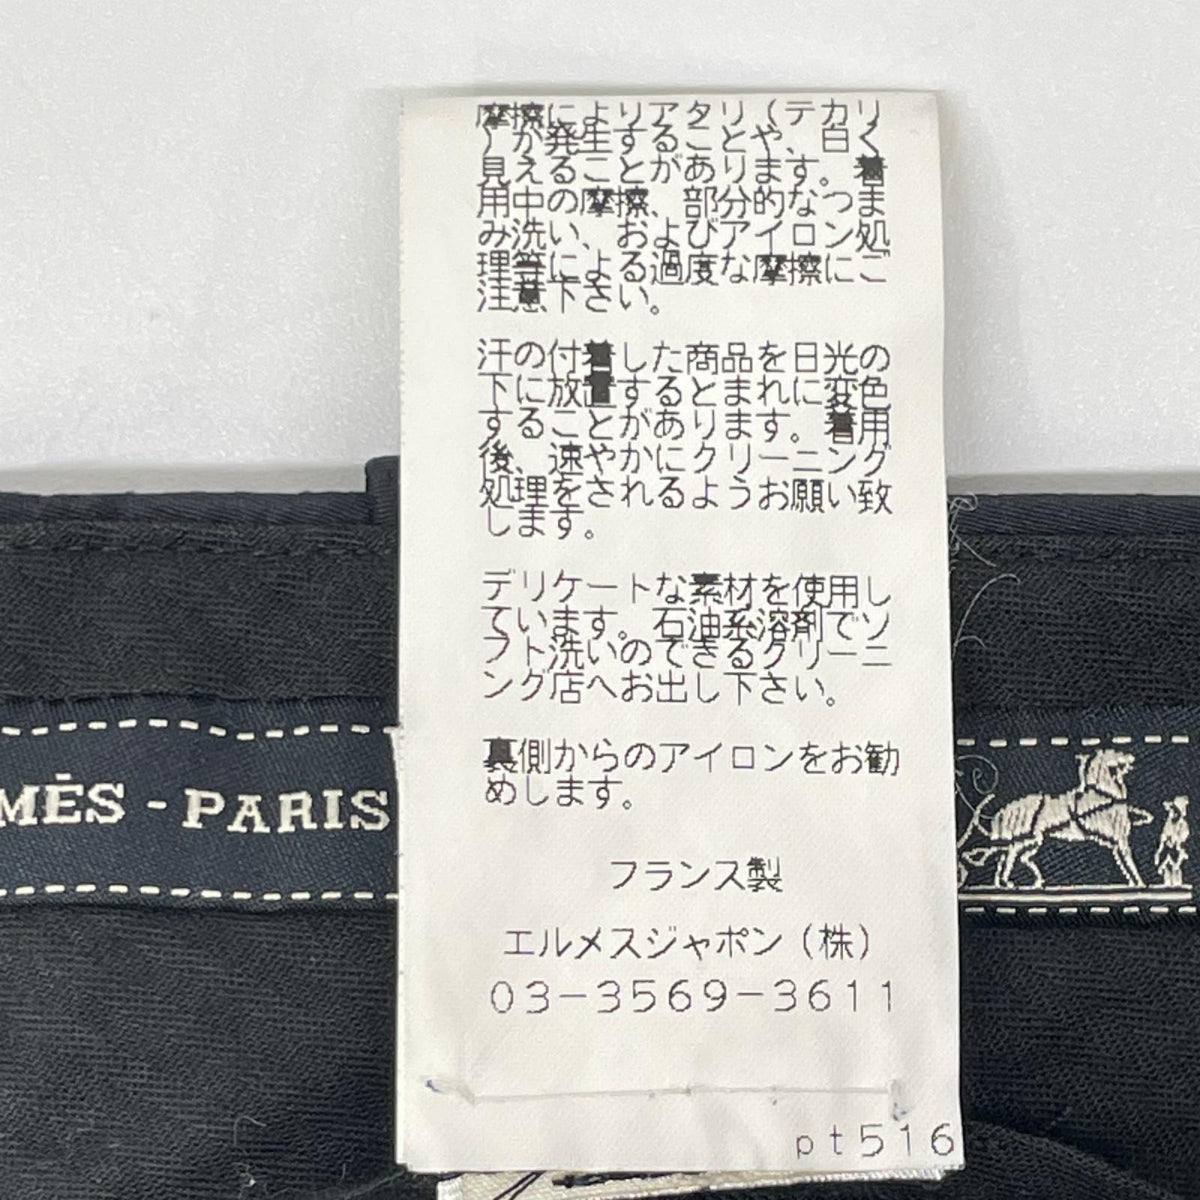 摩擦によりアタリ（テカリ
）が発生することや、白く
見えることがあります。着
用中の摩擦、部分的なつま
み洗い、およびアイロン処
理等による過度な摩擦にご
注意下さい。
汗の付着した商品を日光の
下に放置するとまれに変色
することがあります。着用
後、速やかにクリーニング
処理をされるようお願い致
します。
デリケートな素材を使用し
ています。石油系溶剤でソ
フト洗いのできるクリーニ
ング店へお出し下さい。
裏側からのアイロンをお勧
めします。
フランス製
エルメスジャポン（株）
03-3569-3611
pt516
MÈS - PARIS